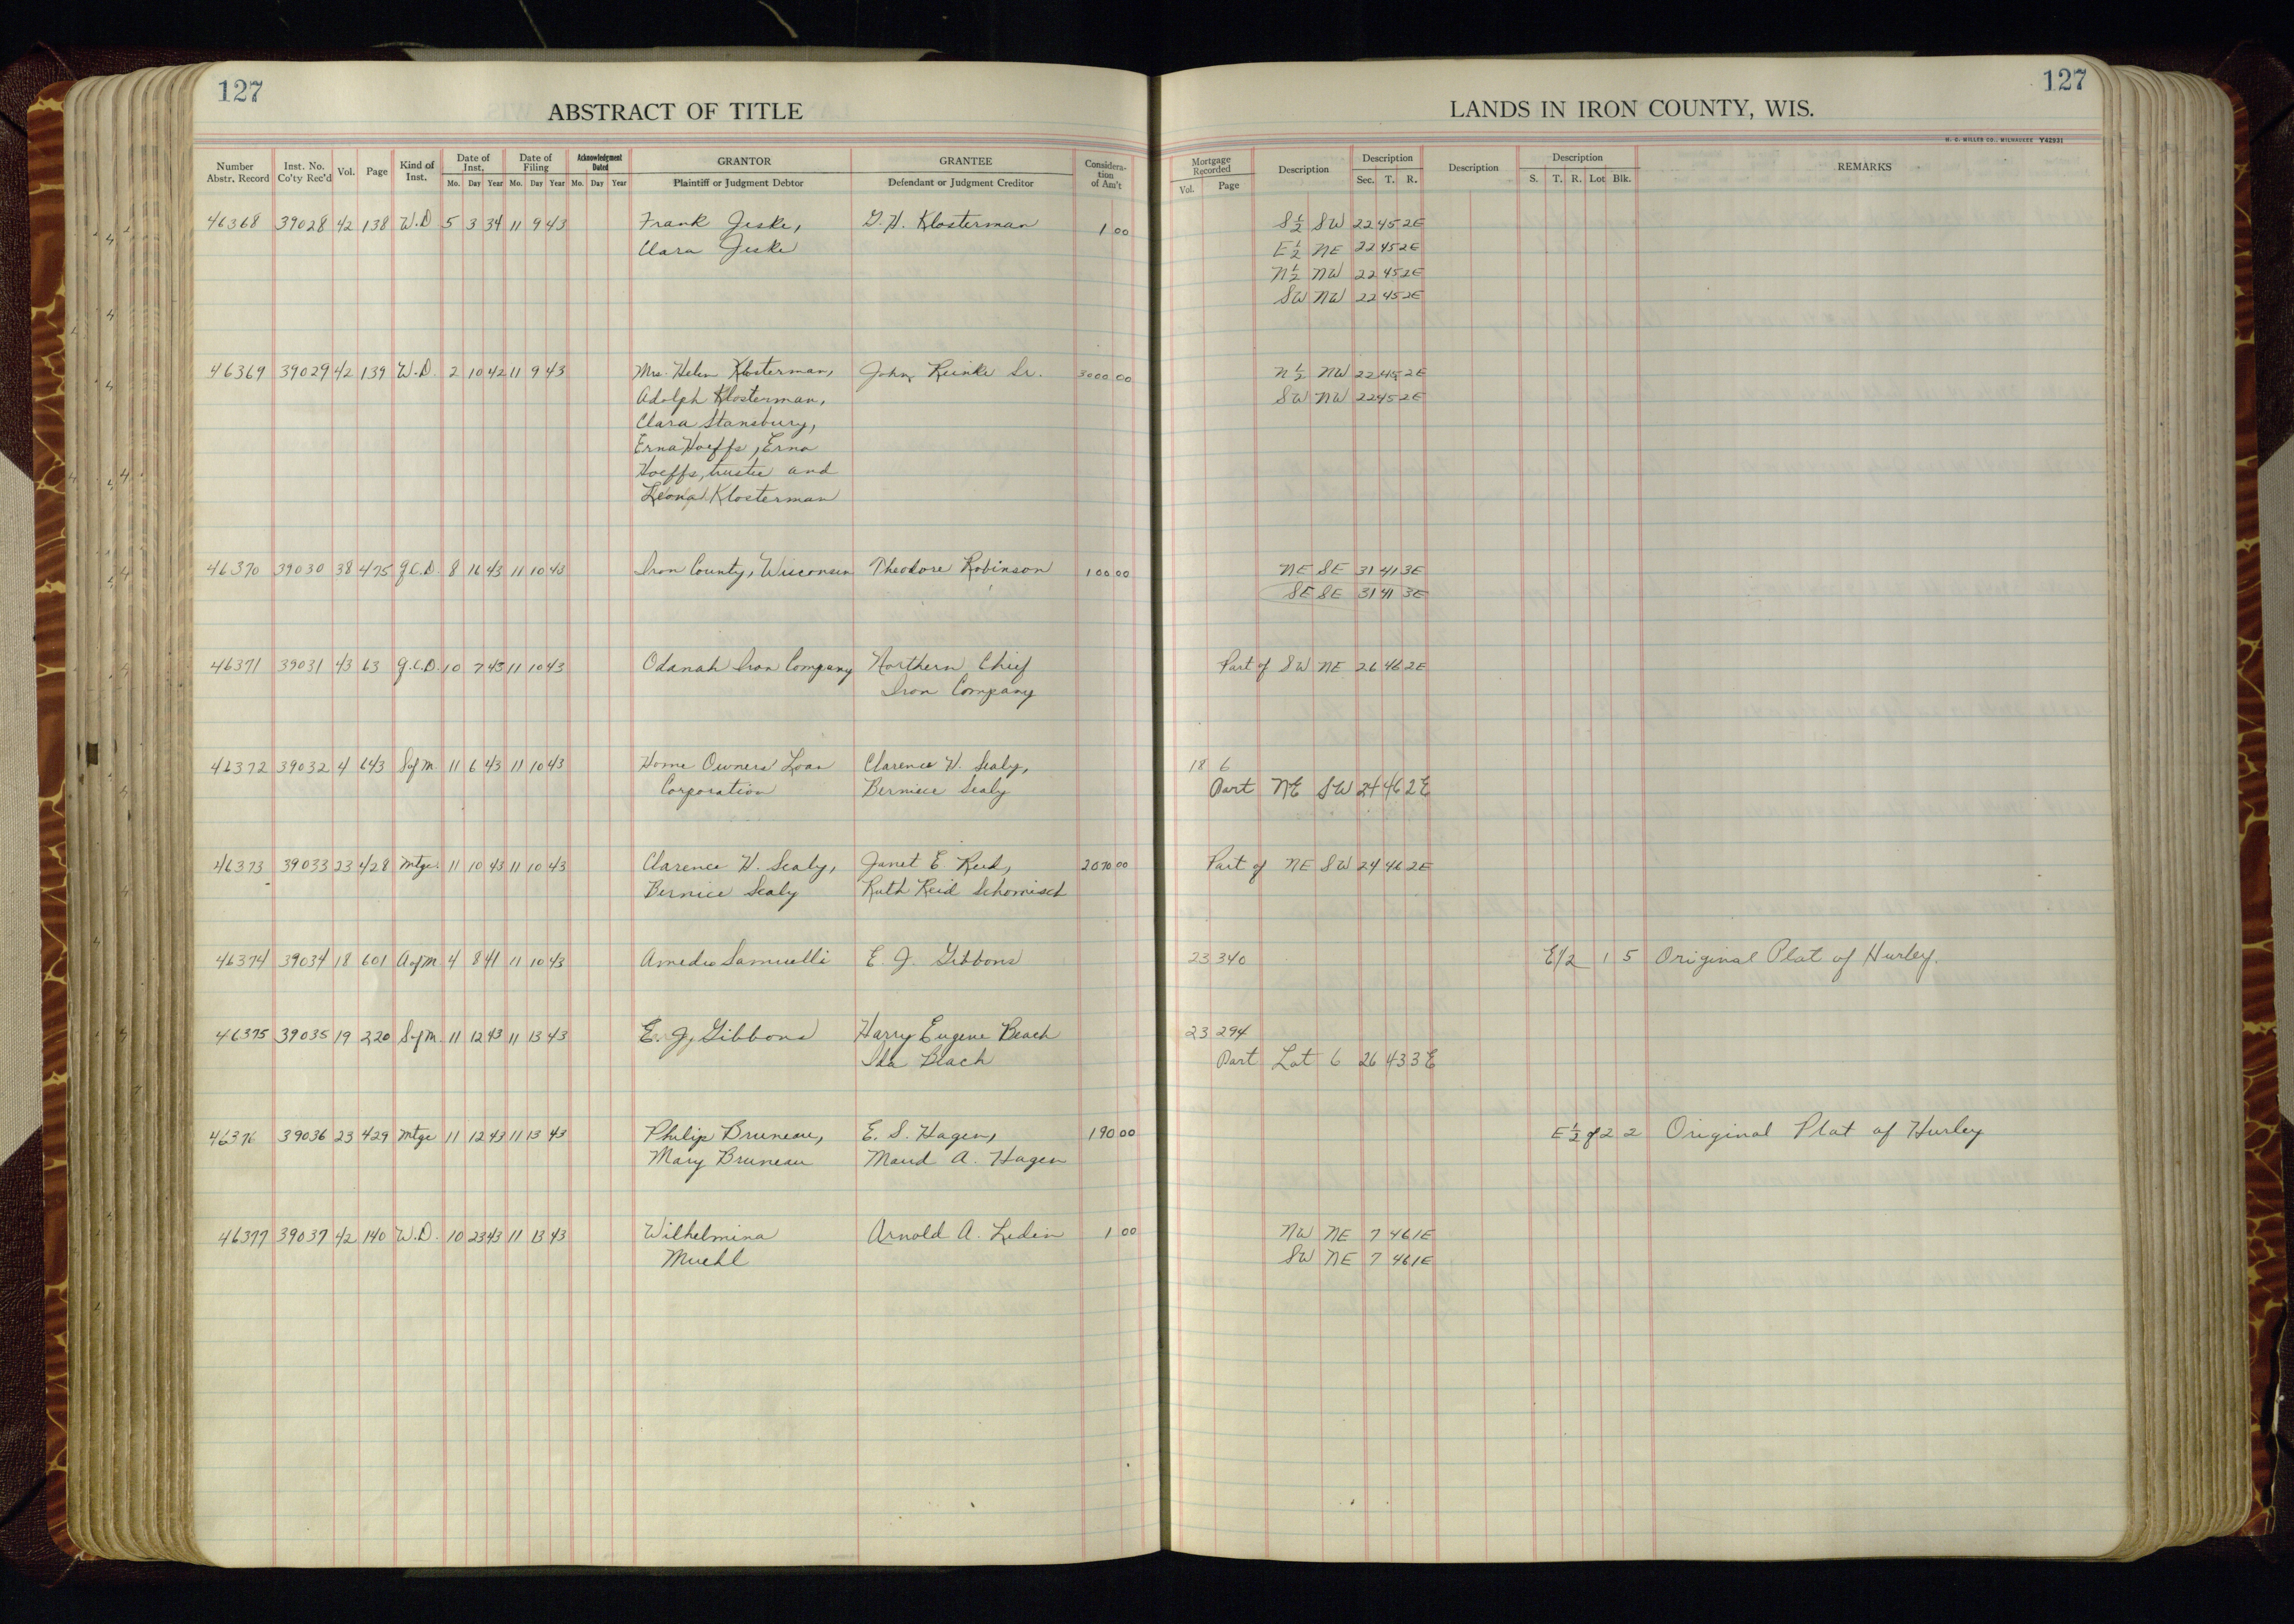 127
ABSTRACT OF TITLE
Number Abstr. Record Inst. No. Co'ty Rec'd Vol. Page Kind of Inst. Date of Inst. Mo. Day Year Date of Filing Mo. Day Year Acknowledgment Dated Mo. Day Year GRANTOR Plaintiff or Judgment Debtor GRANTEE Defendant or Judgment Creditor Consideration of Am't
46368 39028 42 138 W.D 5 3 34 11 9 43 Frank Jeske, G. H. Klosterman 1 00
Clara Jeske
46369 39029 42 139 W.D. 2 10 42 11 9 43 Mrs. Helen Klosterman, John Reinke Sr. 3000 00
Adolph Klosterman,
Clara Stansbury,
Erna Hoeffs, Erna
Hoeffs, trustee and
Leona Klosterman
46370 39030 38 475 Q.C.D. 8 16 43 11 10 43 Iron County, Wisconsin Theodore Robinson 100 00
46371 39031 43 63 Q.C.D. 10 7 43 11 10 43 Odanah Iron Company Northern Chief
Iron Company
46372 39032 4 643 S of M. 11 6 43 11 10 43 Home Owners' Loan Clarence H. Sealy,
Corporation Bernice Sealy
46373 39033 23 428 Mtge. 11 10 43 11 10 43 Clarence H. Sealy, Janet E. Reid, 2070 00
Bernice Sealy Ruth Reid Schomisch
46374 39034 18 601 A of M. 4 8 41 11 10 43 Amedeo Samuelli E. J. Gibbons
46375 39035 19 220 S of M. 11 12 43 11 13 43 E. J. Gibbons Harry Eugene Beach
Ida Beach
46376 39036 23 429 Mtge 11 12 43 11 13 43 Philip Bruneau, E. S. Hagen, 190 00
Mary Bruneau Maud A. Hagen
46377 39037 42 140 W.D. 10 23 43 11 13 43 Wilhelmina Arnold A. Ledin 1 00
Muehl
127
LANDS IN IRON COUNTY, WIS.
H. C. MILLER CO., MILWAUKEE Y42931
Mortgage Recorded Vol. Page Description Description Sec. T. R. Description Description S. T. R. Lot Blk. REMARKS
S½ SW 22 45 2E
E½ NE 22 45 2E
N½ NW 22 45 2E
SW NW 22 45 2E
N½ NW 22 45 2E
SW NW 22 45 2E
NE SE 31 41 3E
SE SE 31 41 3E
Part of SW NE 26 46 2E
18 6
Part NE SW 24 46 2E
Part of NE SW 24 46 2E
23 340 E1/2 1 5 Original Plat of Hurley.
23 294
Part Lot 6 26 43 3E
E½ of 2 2 Original Plat of Hurley
NW NE 7 46 1E
SW NE 7 46 1E